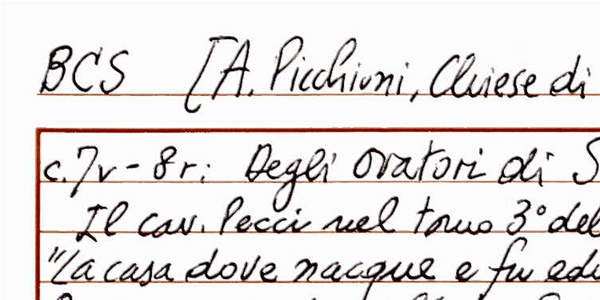 BCS [A. Picchioni, Chiese di
c.7v-8r: Degli Oratori di S
Il cav. Pecci nel tomo 3° del
"La casa dove nacque e fu edu